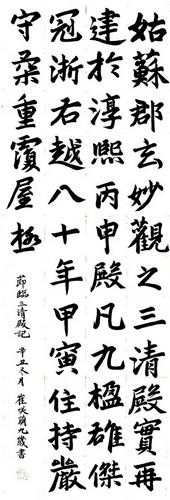 姑蘇郡玄妙觀之三清殿實再
建於淳熙丙申殿凡九楹雄傑
冠浙右越八十年甲寅住持嚴
守柔重覆屋極
節臨三清殿記 辛丑冬月 崔咲萌九歲書